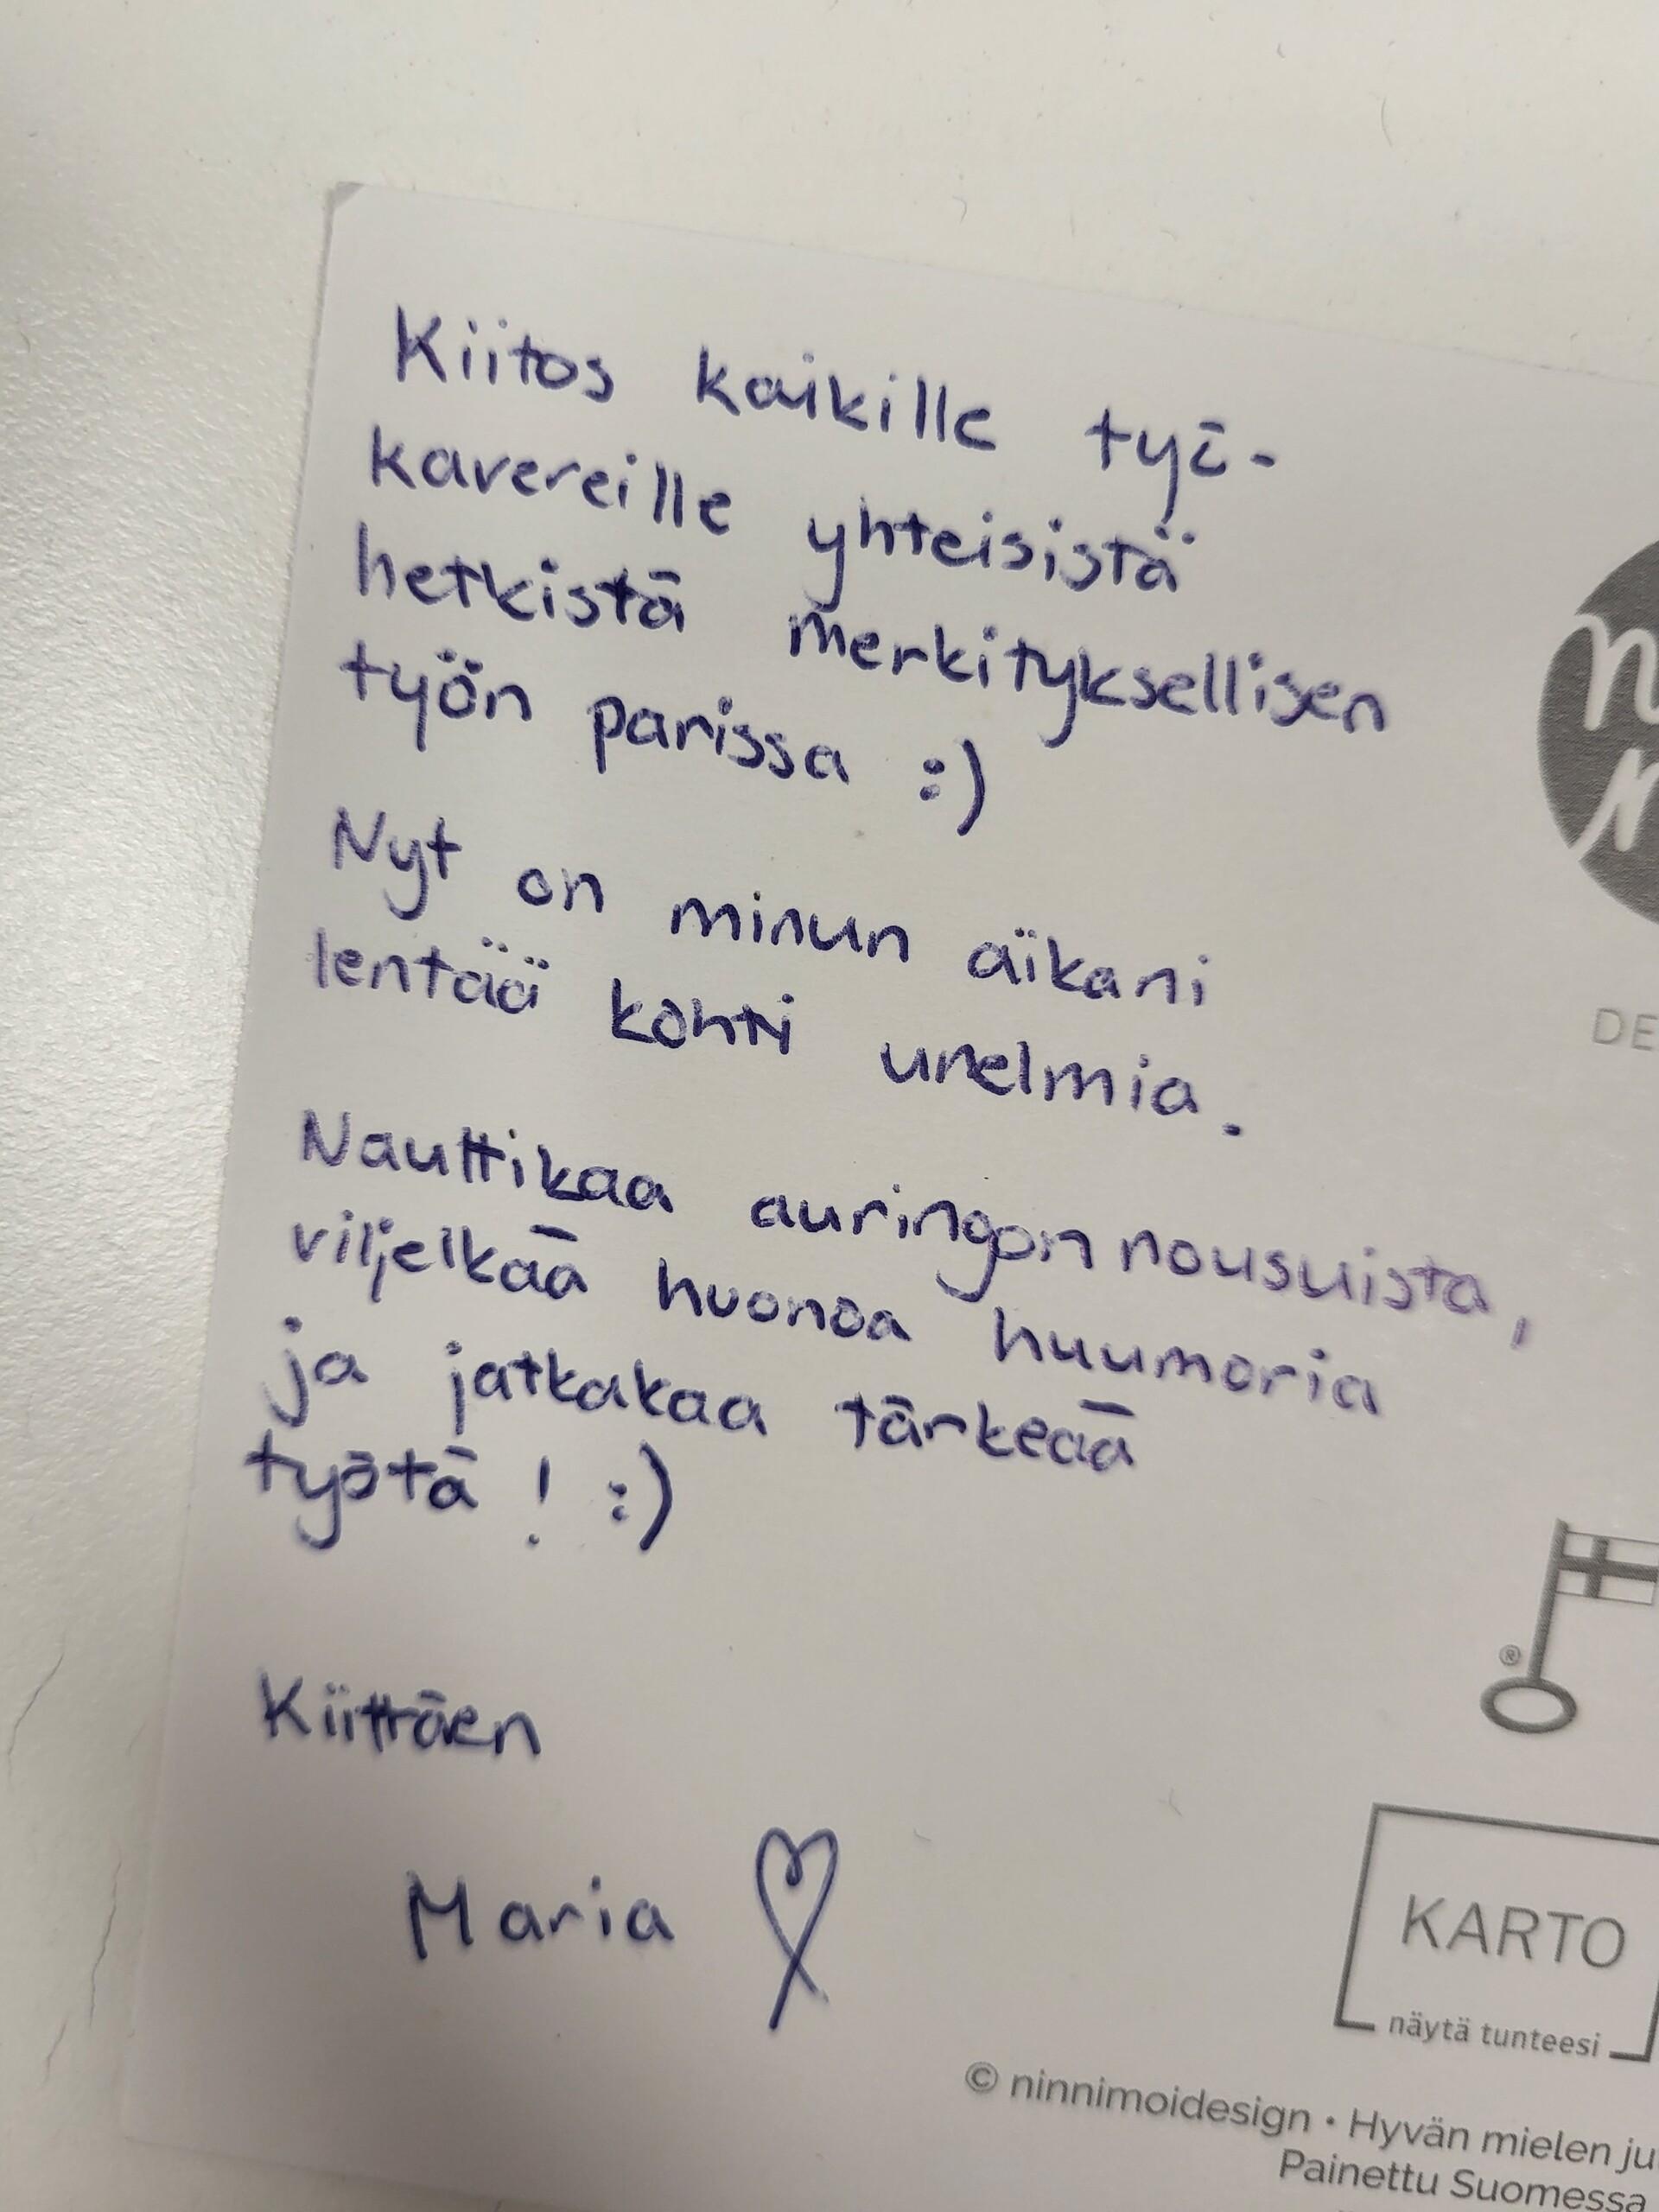 Kiitos kaikille työ-
kavereille yhteisistä
hetkistä merkityksellisen
työn parissa :)
Nyt on minun aikani
lentää kohti unelmia.
Nauttikaa auringon nousuista,
viljelkää huonoa huumoria
ja jatkakaa tärkeää
työtä! :)
Kiittäen
Maria
DE
®
KARTO
näytä tunteesi
© ninnimoidesign • Hyvän mielen ju
Painettu Suomessa